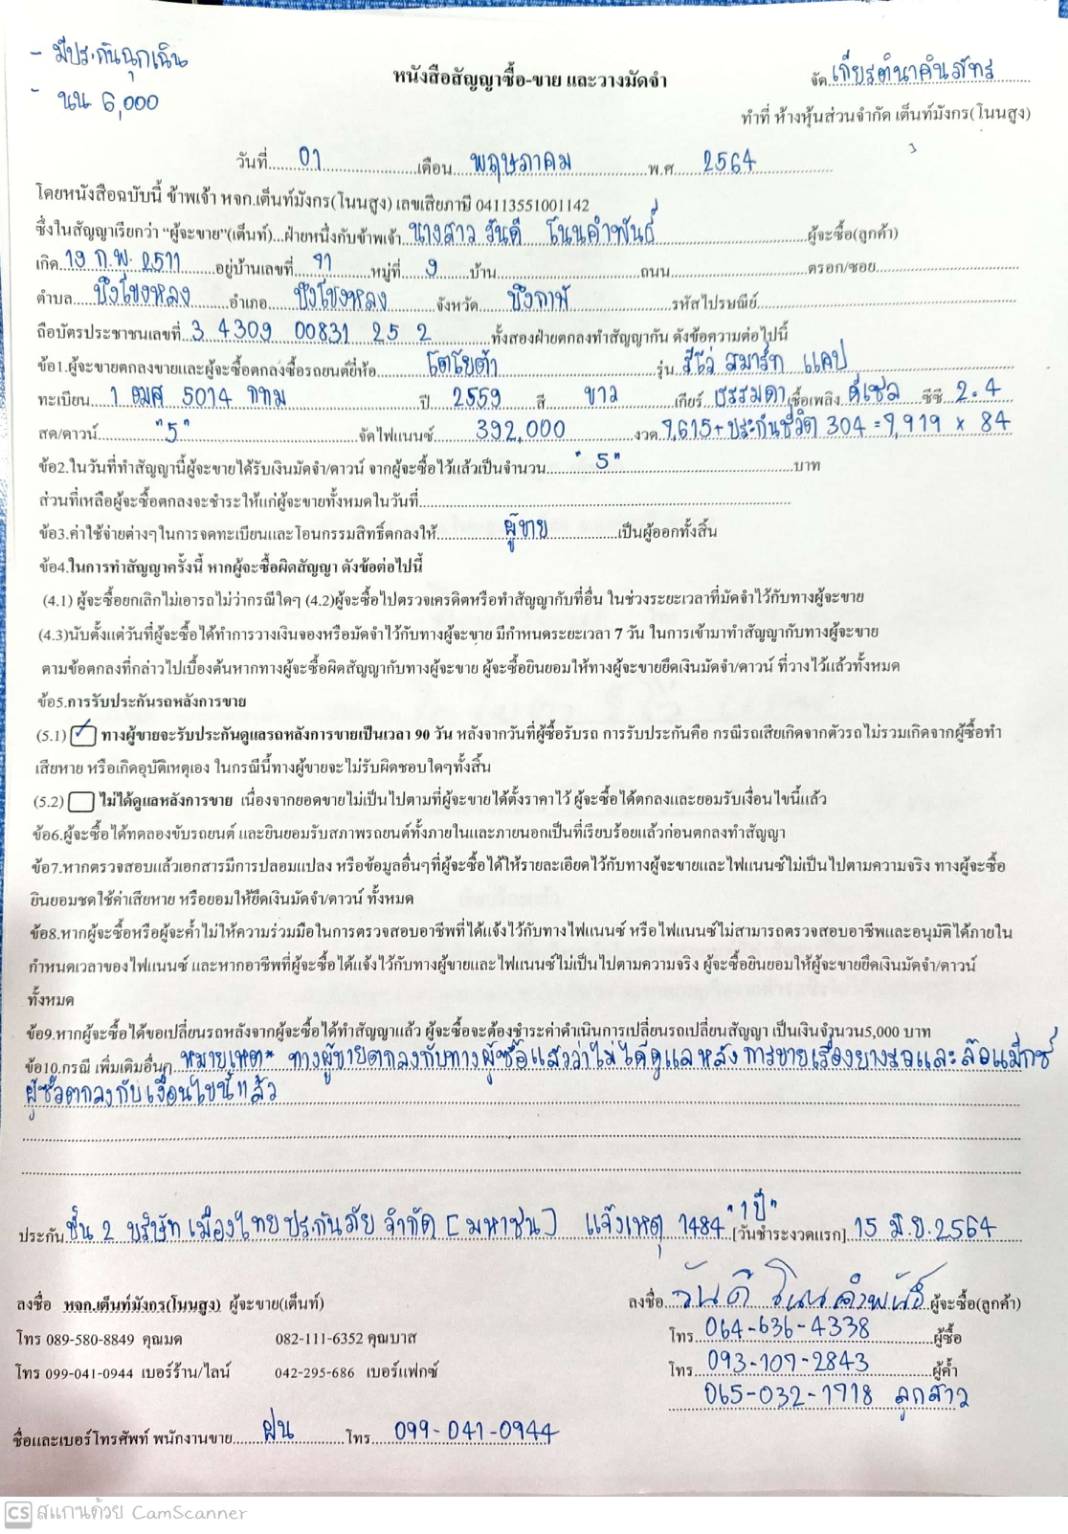 - มีประกันฉุกเฉิน
- นน 6,000
หนังสือสัญญาซื้อ-ขาย และวางมัดจำ
จัด เกียรตินาคินภัทร
ทำที่ ห้างหุ้นส่วนจำกัด เต็นท์มังกร(โนนสูง)
วันที่ 01 เดือน พฤษภาคม พ.ศ. 2564
โดยหนังสือฉบับนี้ ข้าพเจ้า หจก.เต็นท์มังกร(โนนสูง) เลขเสียภาษี 04113551001142
ซึ่งในสัญญาเรียกว่า "ผู้จะขาย"(เต็นท์)...ฝ่ายหนึ่งกับข้าพเจ้า นางสาว วันดี โนนคำพันธ์ ผู้จะซื้อ(ลูกค้า)
เกิด 19 ก.พ. 2511 อยู่บ้านเลขที่ 91 หมู่ที่ 9 บ้าน ถนน ตรอก/ซอย
ตำบล บึงโขงหลง อำเภอ บึงโขงหลง จังหวัด บึงกาฬ รหัสไปรษณีย์
ถือบัตรประชาชนเลขที่ 3 4309 00831 25 2 ทั้งสองฝ่ายตกลงทำสัญญากัน ดังข้อความต่อไปนี้
ข้อ1.ผู้จะขายตกลงขายและผู้จะซื้อตกลงซื้อรถยนต์ยี่ห้อ โตโยต้า รุ่น รีโว่ สมาร์ท แคป
ทะเบียน 1 ฒศ 5014 กทม ปี 2559 สี ขาว เกียร์ ธรรมดา เชื้อเพลิง ดีเซล ซีซี 2.4
สด/ดาวน์ "5" จัดไฟแนนซ์ 392,000 งวด 7,615+ประกันชีวิต 304 = 7,919 x 84
ข้อ2.ในวันที่ทำสัญญานี้ผู้จะขายได้รับเงินมัดจำ/ดาวน์ จากผู้จะซื้อไว้แล้วเป็นจำนวน "5" บาท
ส่วนที่เหลือผู้จะซื้อตกลงจะชำระให้แก่ผู้จะขายทั้งหมดในวันที่
ข้อ3.ค่าใช้จ่ายต่างๆในการจดทะเบียนและโอนกรรมสิทธิ์ตกลงให้ ผู้ขาย เป็นผู้ออกทั้งสิ้น
ข้อ4.ในการทำสัญญาครั้งนี้ หากผู้จะซื้อผิดสัญญา ดังข้อต่อไปนี้
(4.1) ผู้จะซื้อยกเลิกไม่เอารถไม่ว่ากรณีใดๆ (4.2)ผู้จะซื้อไปตรวจเครดิตหรือทำสัญญากับที่อื่น ในช่วงระยะเวลาที่มัดจำไว้กับทางผู้จะขาย
(4.3)นับตั้งแต่วันที่ผู้จะซื้อได้ทำการวางเงินจองหรือมัดจำไว้กับทางผู้จะขาย มีกำหนดระยะเวลา 7 วัน ในการเข้ามาทำสัญญากับทางผู้จะขาย
ตามข้อตกลงที่กล่าวไปเบื้องต้นหากทางผู้จะซื้อผิดสัญญากับทางผู้จะขาย ผู้จะซื้อยินยอมให้ทางผู้จะขายยึดเงินมัดจำ/ดาวน์ ที่วางไว้แล้วทั้งหมด
ข้อ5.การรับประกันรถหลังการขาย
(5.1) ✓ ทางผู้ขายจะรับประกันดูแลรถหลังการขายเป็นเวลา 90 วัน หลังจากวันที่ผู้ซื้อรับรถ การรับประกันคือ กรณีรถเสียเกิดจากตัวรถไม่รวมเกิดจากผู้ซื้อทำ
เสียหาย หรือเกิดอุบัติเหตุเอง ในกรณีนี้ทางผู้จะขายจะไม่รับผิดชอบใดๆทั้งสิ้น
(5.2) ไม่ได้ดูแลหลังการขาย เนื่องจากยอดขายไม่เป็นไปตามที่ผู้จะขายได้ตั้งราคาไว้ ผู้จะซื้อได้ตกลงและยอมรับเงื่อนไขนี้แล้ว
ข้อ6.ผู้จะซื้อได้ทดลองขับรถยนต์ และยินยอมรับสภาพรถยนต์ทั้งภายในและภายนอกเป็นที่เรียบร้อยแล้วก่อนตกลงทำสัญญา
ข้อ7.หากตรวจสอบแล้วเอกสารมีการปลอมแปลง หรือข้อมูลอื่นๆที่ผู้จะซื้อได้ให้รายละเอียดไว้กับทางผู้จะขายและไฟแนนซ์ไม่เป็นไปตามความจริง ทางผู้จะซื้อ
ยินยอมชดใช้ค่าเสียหาย หรือยอมให้ยึดเงินมัดจำ/ดาวน์ ทั้งหมด
ข้อ8.หากผู้จะซื้อหรือผู้จะค้ำไม่ให้ความร่วมมือในการตรวจสอบอาชีพที่ได้แจ้งไว้กับทางไฟแนนซ์ หรือไฟแนนซ์ไม่สามารถตรวจสอบอาชีพและอนุมัติได้ภายใน
กำหนดเวลาของไฟแนนซ์ และหากอาชีพที่ผู้จะซื้อได้แจ้งไว้กับทางผู้ขายและไฟแนนซ์ไม่เป็นไปตามความจริง ผู้จะซื้อยินยอมให้ผู้จะขายยึดเงินมัดจำ/ดาวน์
ทั้งหมด
ข้อ9.หากผู้จะซื้อได้ขอเปลี่ยนรถหลังจากผู้จะซื้อได้ทำสัญญาแล้ว ผู้จะซื้อจะต้องชำระค่าดำเนินการเปลี่ยนรถเปลี่ยนสัญญา เป็นเงินจำนวน5,000 บาท
ข้อ10.กรณี เพิ่มเติมอื่นๆ หมายเหตุ* ทางผู้ขายตกลงกับทางผู้ซื้อแล้วว่าไม่ได้ดูแลหลังการขายเรื่องยางรถและล้อแม็กซ์
ผู้ซื้อตกลงกับเงื่อนไขนี้แล้ว
ประกัน ชั้น 2 บริษัท เมืองไทยประกันภัย จำกัด [มหาชน] แจ้งเหตุ 1484 "1ปี" [วันชำระงวดแรก] 15 มิ.ย.2564
ลงชื่อ หจก.เต็นท์มังกร(โนนสูง) ผู้จะขาย(เต็นท์)
ลงชื่อ วันดี โนนคำพันธ์ ผู้จะซื้อ(ลูกค้า)
โทร 089-580-8849 คุณมด 082-111-6352 คุณบาส
โทร 064-636-4338 ผู้ซื้อ
โทร 099-041-0944 เบอร์ร้าน/ไลน์ 042-295-686 เบอร์แฟกซ์
โทร 093-107-2843 ผู้ค้ำ
065-032-1718 ลูกสาว
ชื่อและเบอร์โทรศัพท์ พนักงานขาย ฝน โทร 099-041-0944
CS สแกนด้วย CamScanner